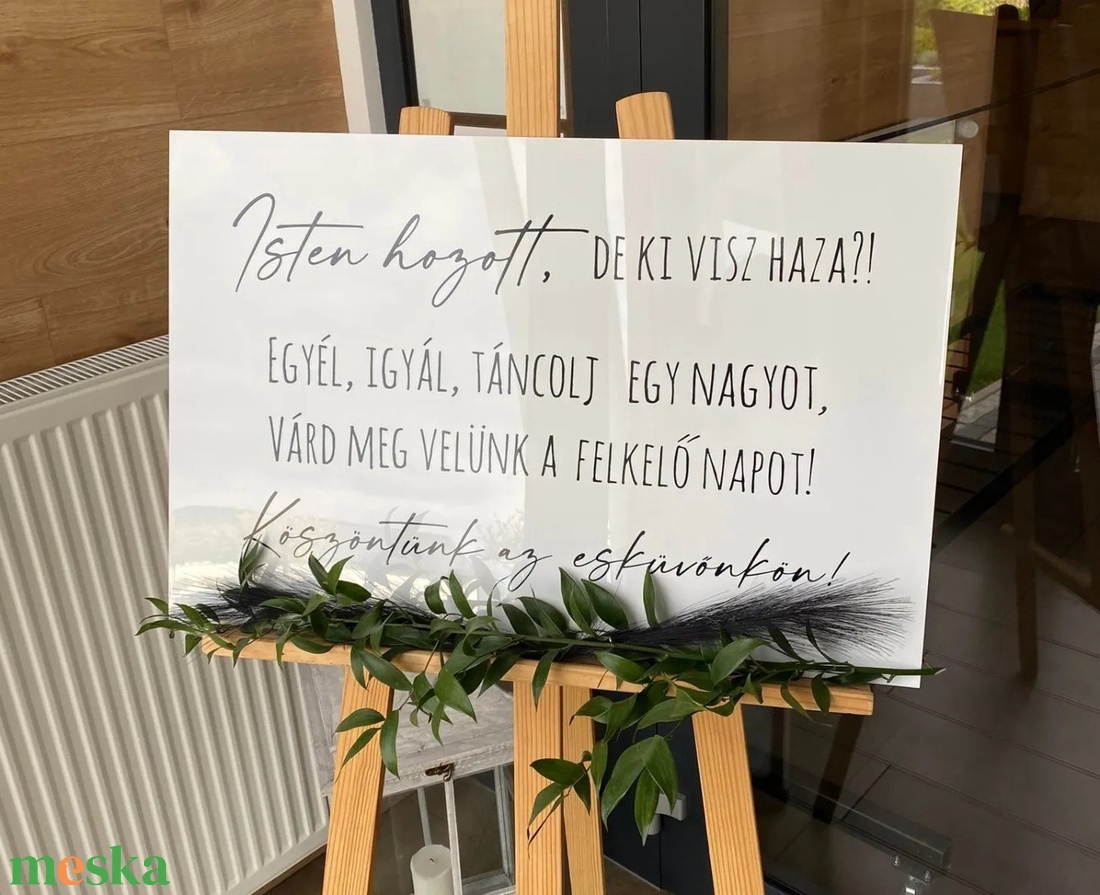 Isten hozott, DE KI VISZ HAZA?!
EGYÉL, IGYÁL, TÁNCOLJ EGY NAGYOT,
VÁRD MEG VELÜNK A FELKELŐ NAPOT!
Köszöntünk az esküvőnkön!
meska